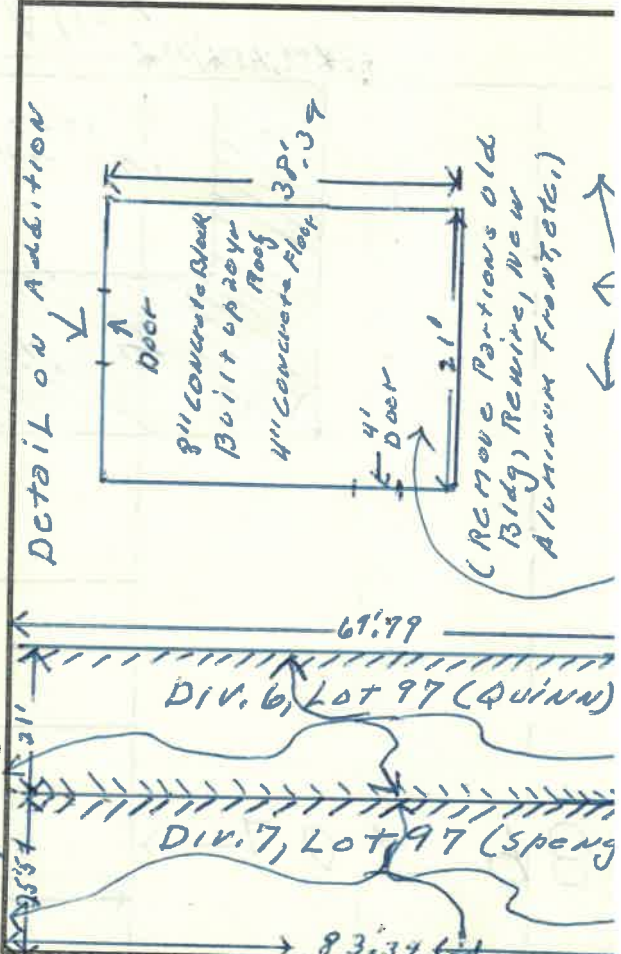 Detail on Addition
Door
8" Concrete Block
Built up 20 yr
Roof
4" Concrete Floor
38'.39
4'
Door
21'
(Remove Portions Old
Bldg, Rewire, New
Aluminum Front, etc.)
67'.79
Div. 6, Lot 97 (Quinn)
21'
Div. 7, Lot 97 (Speng
83.34